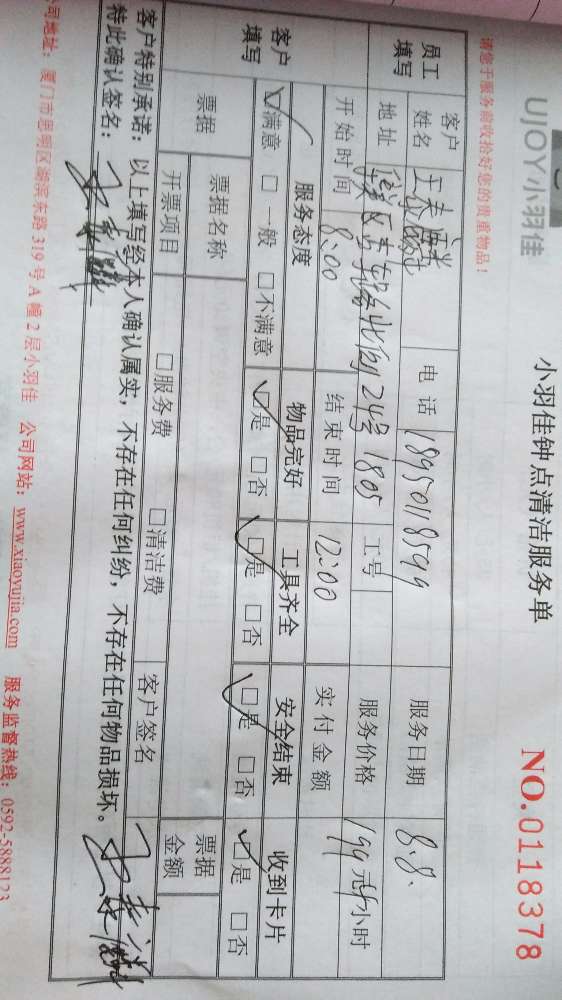 UJOY小羽佳
小羽佳钟点清洁服务单
NO.0118378
请您于服务前收拾好您的贵重物品！
员工填写
客户姓名 王 电话 18950118599 服务日期 8.8.
地址 24号1805 工号 服务价格 199元/小时
开始时间 8:00 结束时间 12:00 实付金额
客户填写
服务态度 物品完好 工具齐全 安全结束 收到卡片
☑满意 □一般 □不满意 ☑是 □否 ☑是 □否 ☑是 □否 ☑是 □否
票据 票据名称 票据金额
开票项目 □服务费 □清洁费 客户签名
客户特别承诺：以上填写经本人确认属实，不存在任何纠纷，不存在任何物品损坏。
特此确认签名：
公司地址：厦门市思明区湖滨东路319号A幢2层小羽佳 公司网站：www.xiaoyujia.com 服务监督热线：0592-5888123